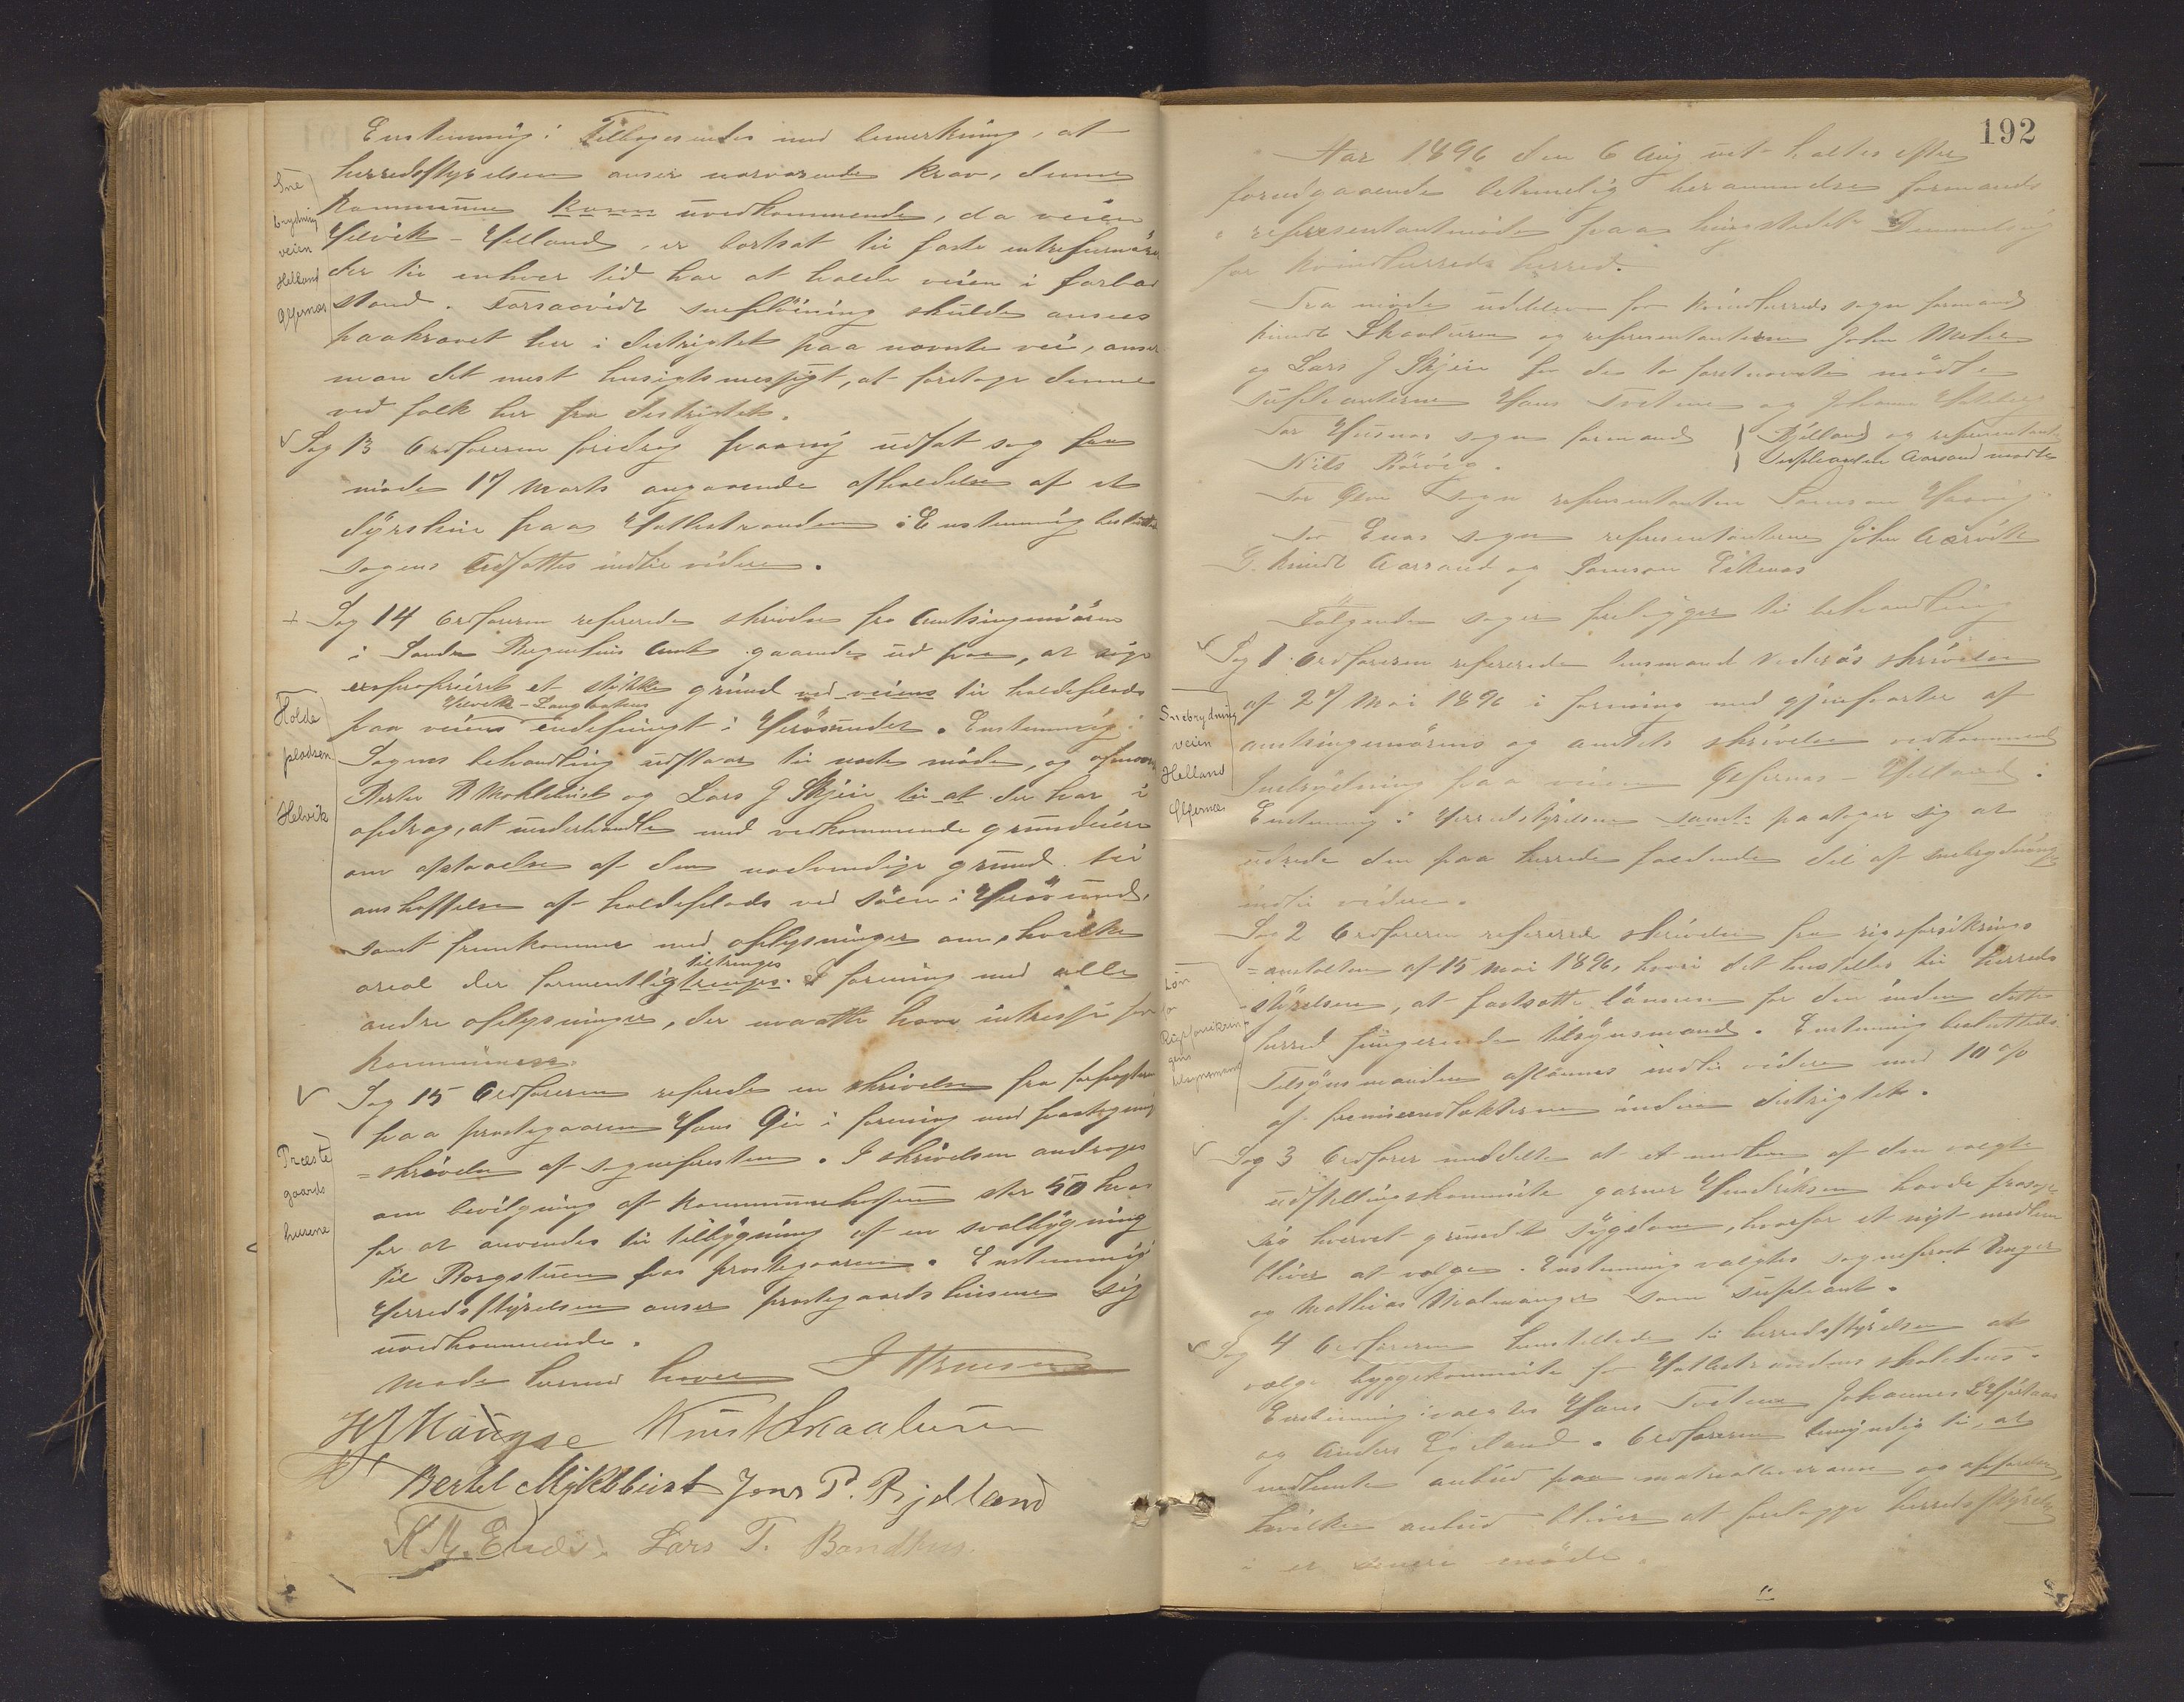 Enstemmig: Tilbagesendes med bemerkning, at
herredsstyrelsen anser nærværende krav, denne
Kommune kom uvedkommende, da veien
Helvik - Helland, er bortsat til faste entreprenører
der til enhver tid har at holde veien i farbar
stand. Forsaavidt sneplöining skulde ansees
paakrævet her i distriktet paa nævnte vei, anser
man det mest hensigtsmessigt, at foretage denne
ved folk her fra distriktet.
Sne
brydning
veien
Helland
Gjermæs
Sag 13 Ordföreren foredrog paany udsat sag fra
möde 17 Marts angaaende afholdelse af et
dyrskue paa Hatlestranden: Enstemmig besluttet
Sagens Udsættes indtil videre.
Sag 14 Ordföreren refererede skrivelse fra Amtsingeniören
i Söndre Bergenhus Amt gaaende ud paa, at söge
exproprieret et stykke grund ved veiens til holdeplads
Helvik - Laugaahus
paa veiens endepunkt i Herösundet. Enstemmig:
Sagens behandling udstaar til næste möde, og opnævnes
Bertel B Myklebust og Lars J Skjeie til at der har i
opdrag, at underhandle med vedkommende grundeiere
om afstaaelse af den nödvendige grund til
anskaffelse af holdeplads ved Söen i Herösund,
samt fremkomme med oplysninger om, hvilke
tiltrenges
areal der formentlig trenges. I forening med alle
andre oplysninger, der maatte have intresse for
Kommunen.
Holde
pladsen
Helvik
Sag 15 Ordföreren refererede en skrivelse fra forpagteren
paa prestegaaren Hans Gie i forening med paategning
=skrivelse af sognepresten. I skrivelsen androges
om bevilgning af kommunekassen stor 50 kroner
for at anvendes til tilbygning af en svalbygning
til Borgstuen paa prestegaaren. Enstemmig
Herredsstyrelsen anser prestegaardshusene sig
uvedkommende.
Præste
gaards
husene
Mödet hermed hævet
H J Haugse Knut Skaaluren
Bertel Myklebust Jons P. Bjelland
K. M. Enes. Lars T. Bondhus.
192
Aar 1896 den 6 Aug. holdtes efter
foregaaende lovmelig herammede formands
& representantmöde paa thingstedet Dimmelsvig
for Kvindherreds herred.
Fra mödet uddeltes for Kvindherreds sogn formand
Knudt Skaaluren og representanterne John Meler
og Lars J Skjeie for de to forstnævnte mödte
Supleanterne Hans Tveitene og Johannes
For Husnæs sogn formand Bjelland og representant
Nils Rörvig. Supleanten Aarsand mödte
For Ölve Sogn representanten Samson
For Enæs Sogn representanterne John Aarvik
G. Knudt Aarsand og Samson Eikenæs
Fölgende sager foreligger til behandling
Sag 1 Ordföreren refererede lensmand Nederaas skrivelse
af 27 Mai 1896 i forening med gjenparter af
amtsingeniörens og amtets skrivelse vedkommende
Snebrydning paa veien Gjermæs - Helland:
Enstemmig: Herredsstyrelsen samt paatager sig at
udrede den paa herredet faldende del af snebrydning
indtil videre.
Snebrydning
veien
Helland
Gjermæs
Sag 2 Ordföreren refererede skrivelse fra rigsforsikrings
=anstalten af 15 Mai 1896, hvori det henstilles til herreds
-styrelsen, at fastsætte lönnen for den inden dette
herred fungerende tilsynsmand. Enstemmig besluttedes
Tilsynsmanden aflönnes indtil videre med 10 %
af premieindtægterne inden distrigtet.
Lön
for
Rigsforsikrin-
gens
tilsynsmand
Sag 3 Ordförer meddelte at et medlem af den valgte
udstillingskommite garver Hendriksen havde frasagt
sig hvervet grundet sygdom, hvorfor et nyt medlem
bliver at vælge. Enstemmig valgtes sogneprest Unger
og Mathias Malmanger som supleant.
Sag 4 Ordföreren henstillede til herredsstyrelsen at
vælge byggekommite for Hatlestrandens skolehus.
Enstemmig: valgtes Hans Tveitene Johannes L Hjertaas
og Anders Egeland. Ordföreren bemyndig til, at
indhente anbud paa matrialleverance og opförelse,
hvilke anbud bliver at forelægge herredsstyrelsen
i et senere möde.